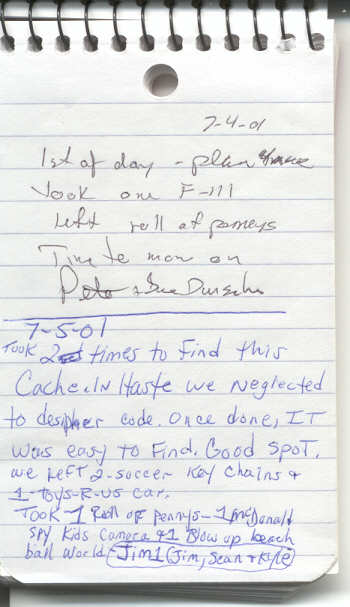 7-4-01
1st of day - plan
Took one F-111
Left roll of penneys
Time to move on
Pete & Sue
7-5-01
Took 2 times to find this
Cache. In Haste we neglected
to despher code. Once done, IT
was easy to Find. Good Spot.
we Left 2-soccer Key Chains &
1-Toys-R-us car.
Took 1 Roll of pennys - 1 McDonald
Spy Kids Camera & 1 Blow up beach
ball world - Jim1 (Jim, Sean & Kyle)